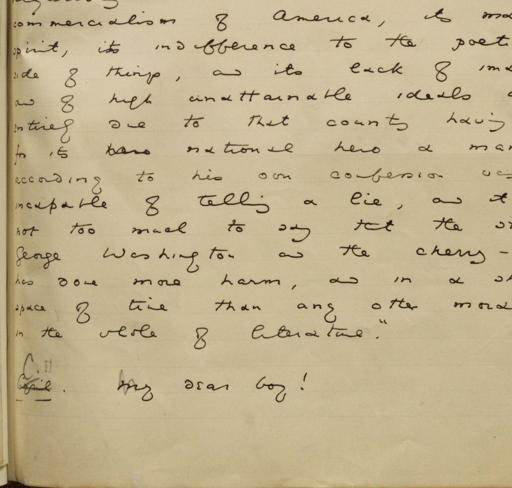 commercialism of America, its ma
spirit, its indifference to the poeti
side of things, and its lack of ima
and of high unattainable ideals a
entirely due to that country having
for its hero national hero a man
according to his own confession was
incapable of telling a lie, and it
not too much to say that the st
George Washington and the cherry-
has done more harm, and in a sh
space of time than any other mora
in the whole of literature."
Cyril. My dear boy!